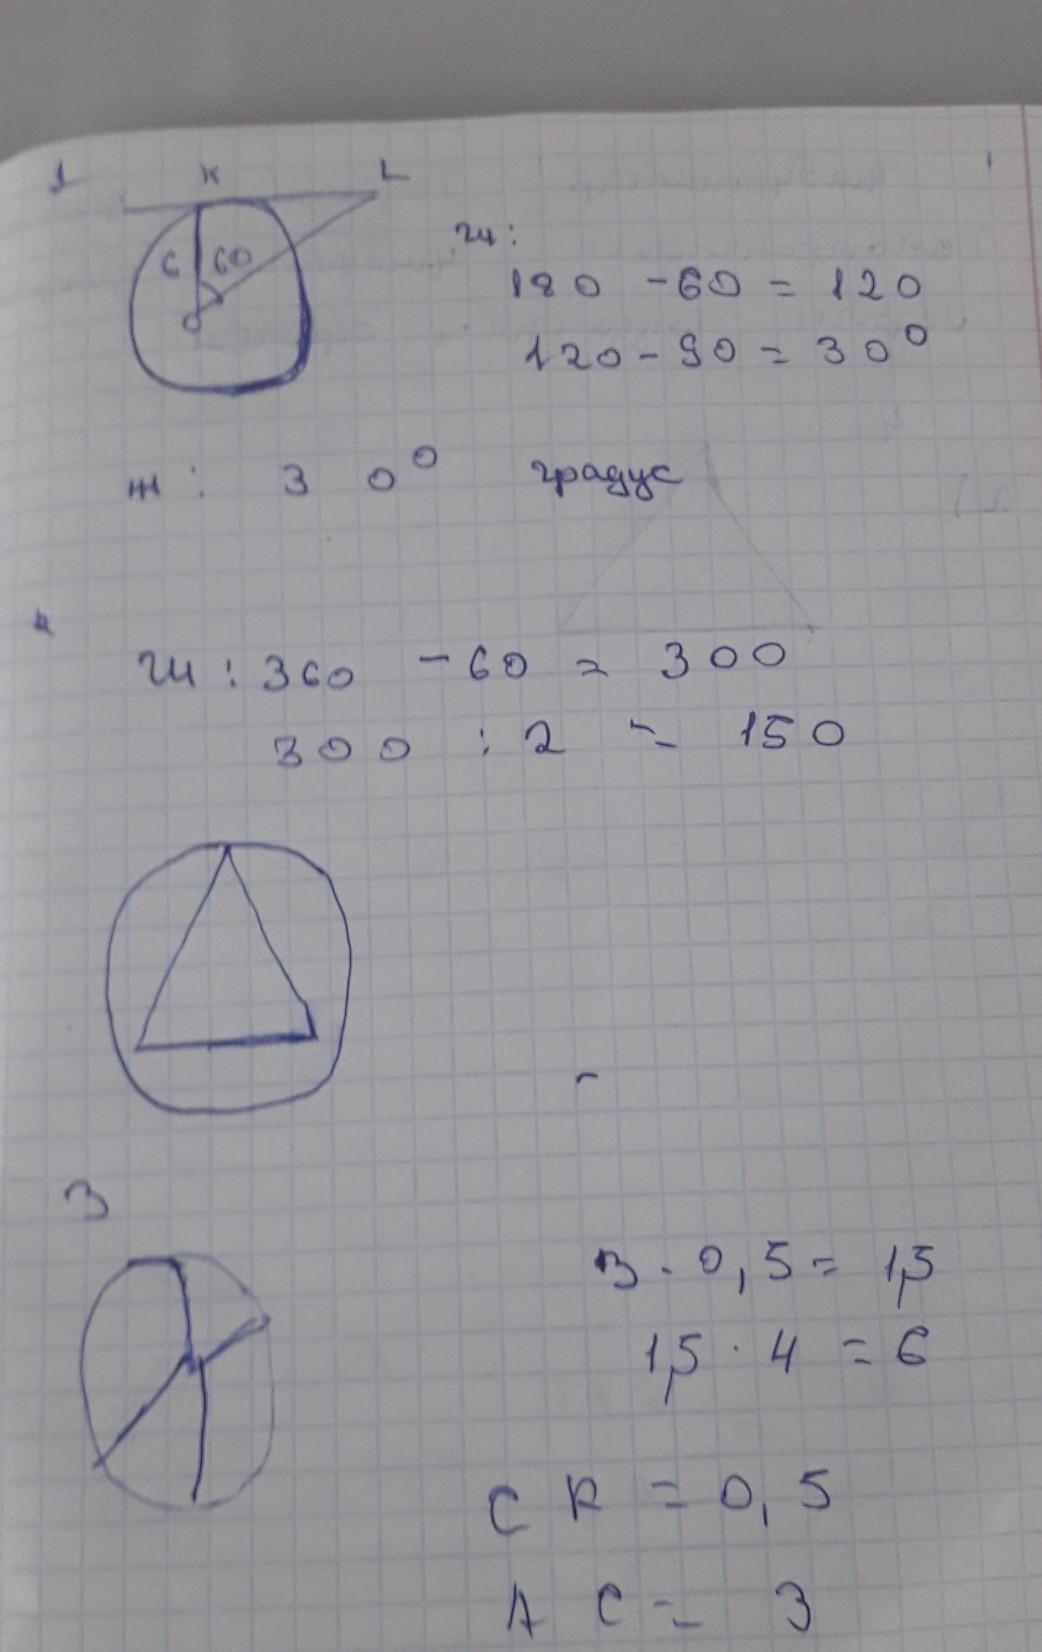 1
K L
6 60
O
Ш:
180 - 60 = 120
120 - 90 = 30⁰
Ж: 30⁰ градус
Ш: 360 - 60 = 300
300 : 2 = 150
3
3 · 0,5 = 1,5
1,5 · 4 = 6
CK = 0,5
AC = 3